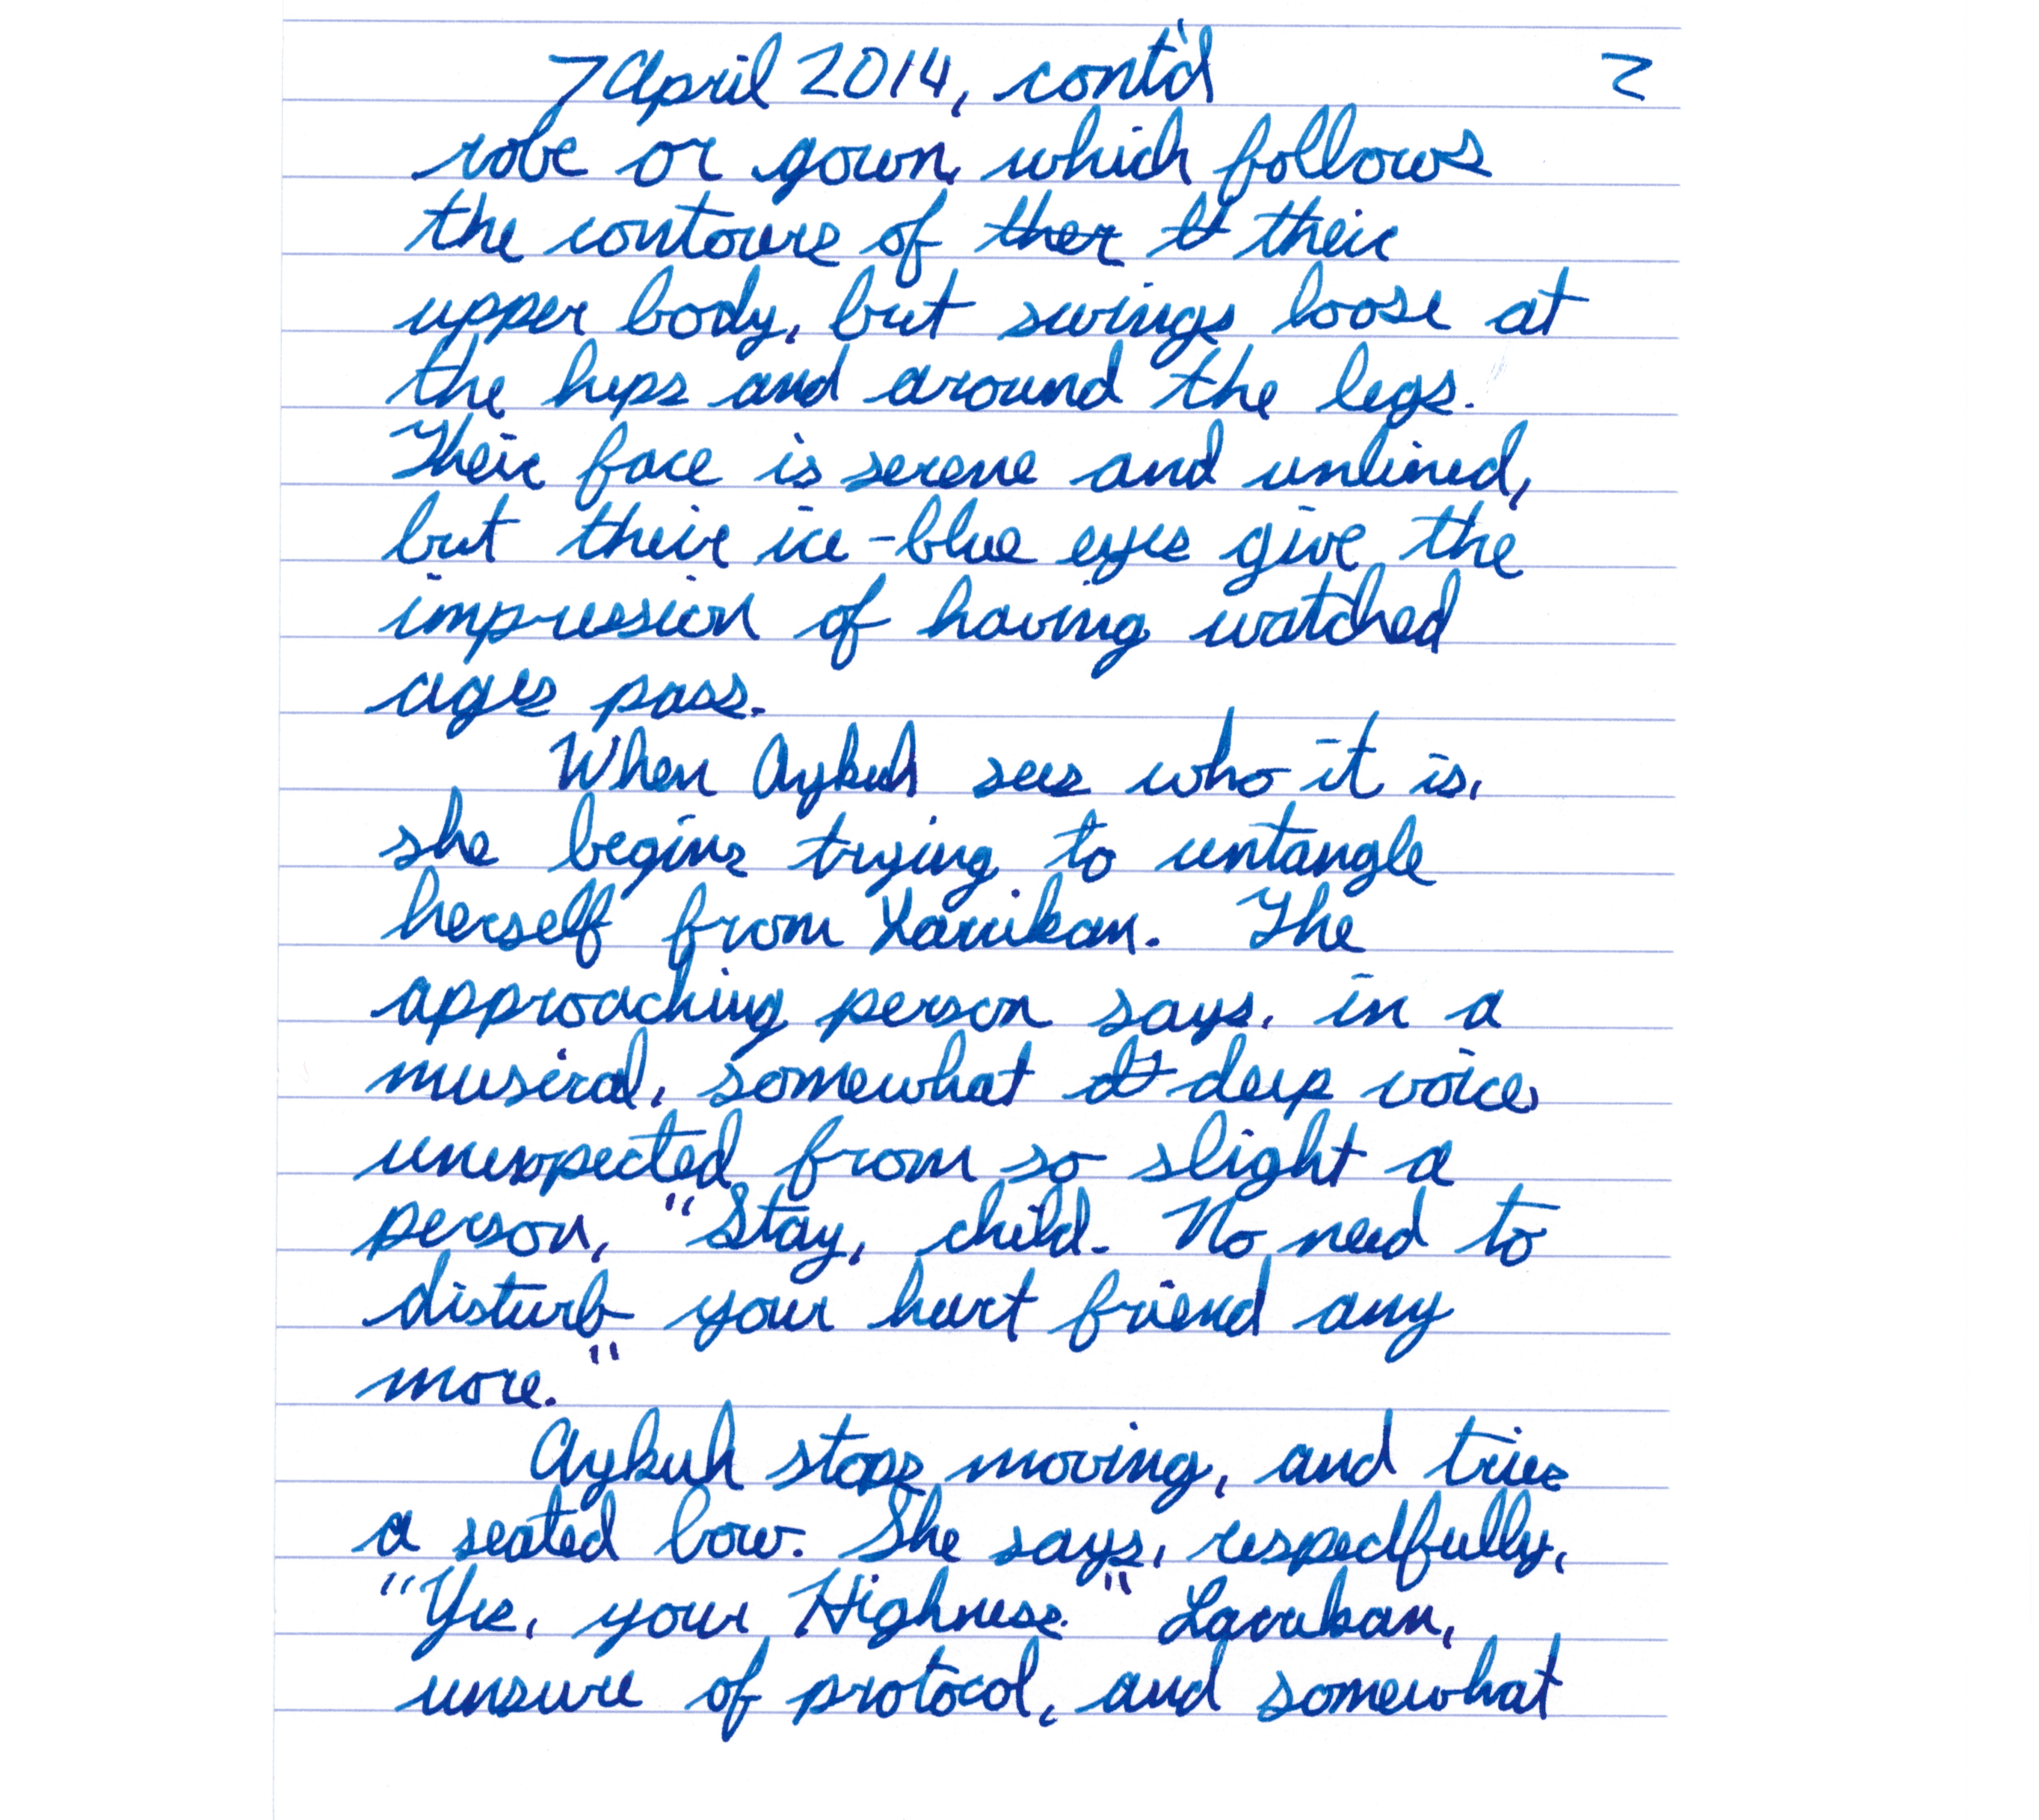 7 April 2014, cont'd 2
robe or gown, which follows
the contours of ther t their
upper body, but swings loose at
the hips and around the legs.
Their face is serene and unlined,
but their ice-blue eyes give the
impression of having watched
ages pass.
When Aykuh sees who it is,
she begins trying to untangle
herself from Larrikan. The
approaching person says, in a
musical, somewhat dt deep voice,
unexpected from so slight a
person, "Stay, child. No need to
disturb your hurt friend any
more."
Aykuh stops moving, and tries
a seated bow. She says, respectfully,
"Yes, your Highness." Larrikan,
unsure of protocol, and somewhat